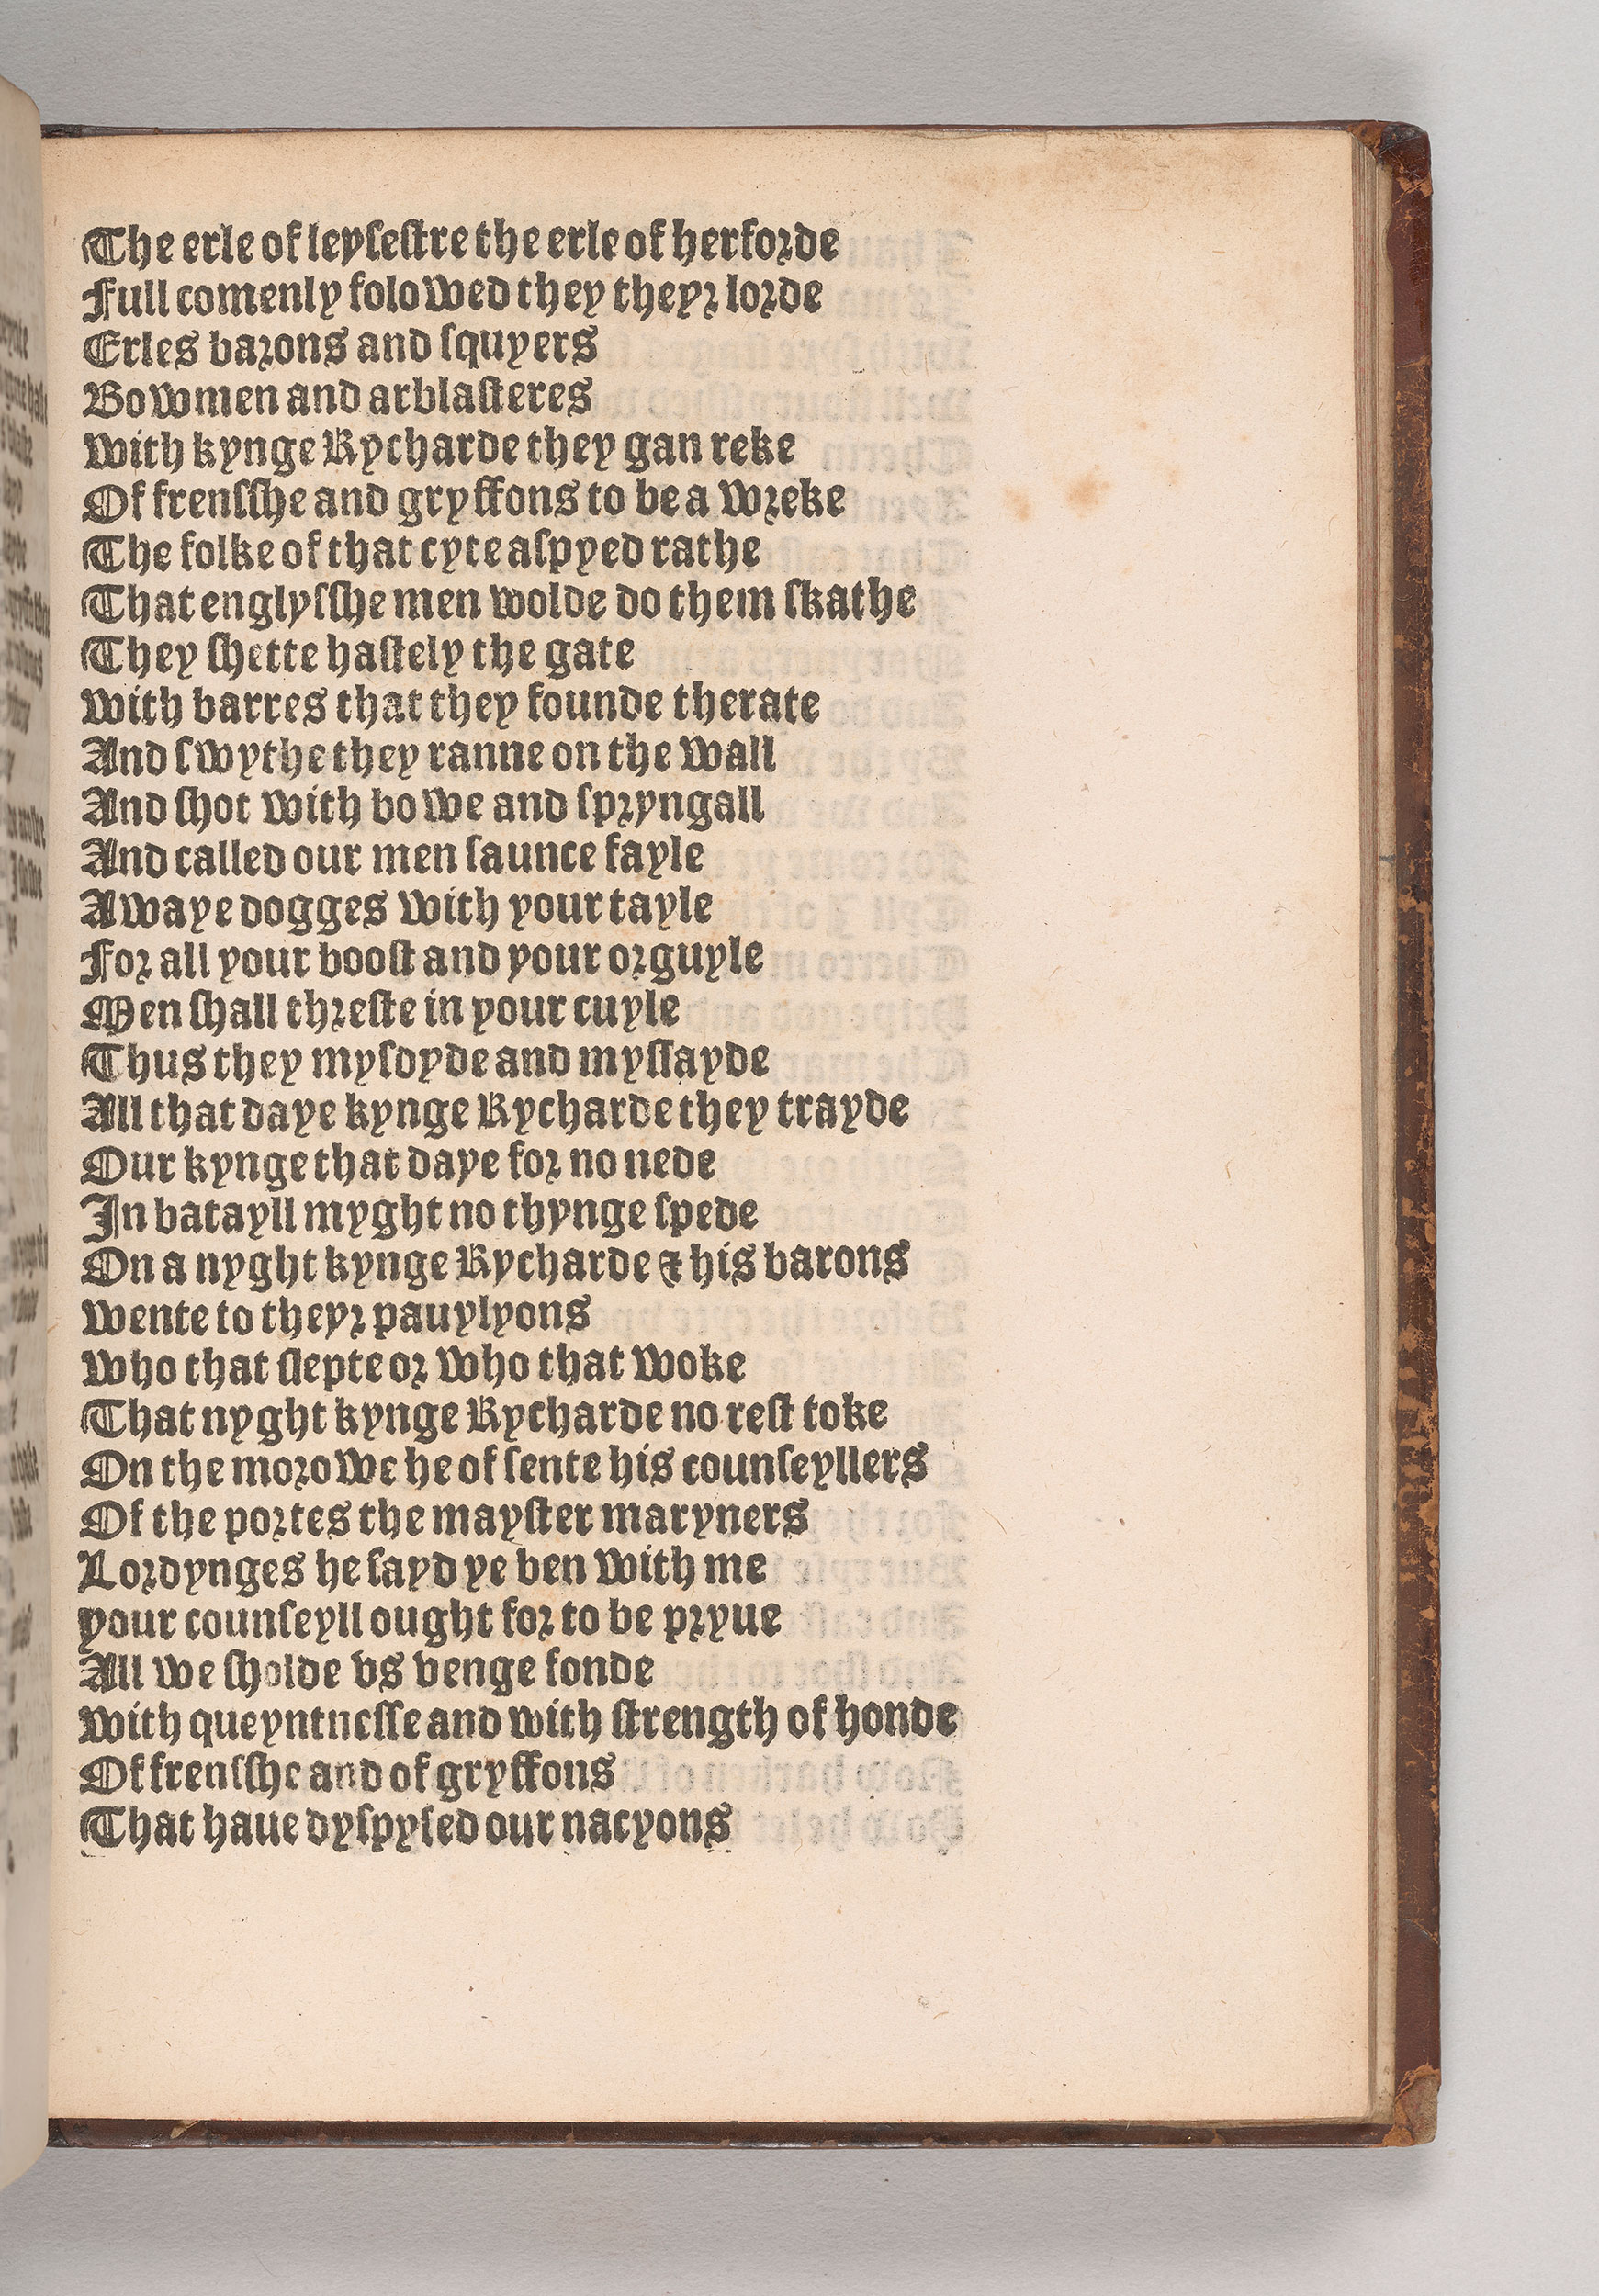 The erle of leyſeſtre the erle of herforde
Full comenly folowed they theyr lorde
Erles barons and ſquyers
Bowmen and arblaſteres
With kynge Rycharde they gan reke
Of frenſſhe and gryffons to be a wreke
The folke of that cyte aſpyed rathe
That englyſſhe men wolde do them ſkathe
They ſhette haſtely the gate
With barres that they founde therate
And ſwythe they ranne on the wall
And ſhot with bowe and ſpryngall
And called our men ſaunce fayle
Awaye dogges with your tayle
For all your booſt and your orguyle
Men ſhall threſte in your cuyle
Thus they myſdyde and myſſayde
All that daye kynge Rycharde they trayde
Our kynge that daye for no nede
In batayll myght no thynge ſpede
On a nyght kynge Rycharde & his barons
Wente to theyr pauylyons
Who that ſlepte or who that woke
That nyght kynge Rycharde no reſt toke
On the morowe he of ſente his counſeyllers
Of the portes the mayſter maryners
Lordynges he ſayd ye ben with me
your counſeyll ought for to be pryue
All we ſholde vs venge fonde
With queyntneſſe and with ſtrength of honde
Of frenſſhe and of gryffons
That haue dyſpyſed our nacyons